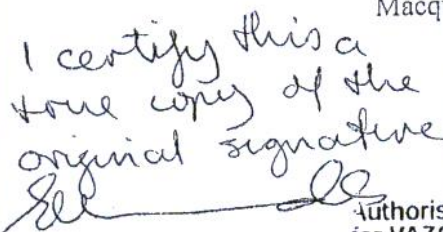 Macq
I certify this a
true copy of the
original signature
Authoris